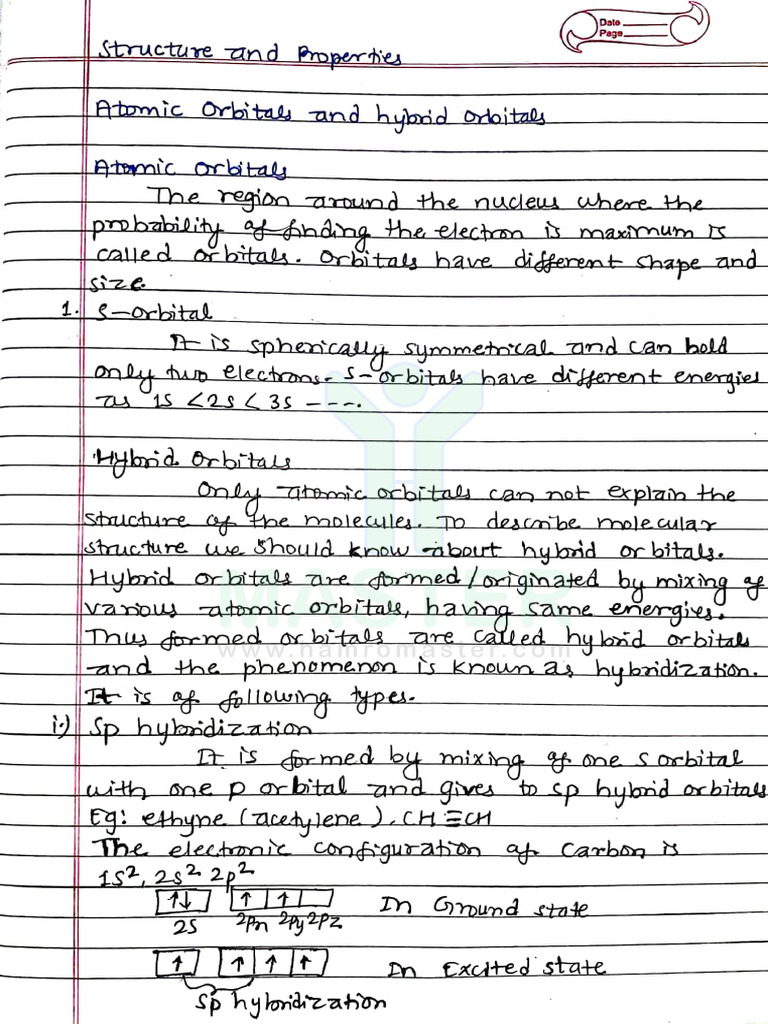 Date
Page
Structure and Properties
Atomic Orbitals and hybrid orbitals
Atomic orbitals
The region around the nucleus where the
probability of finding the electron is maximum is
called orbitals. Orbitals have different shape and
size.
1. S-orbital
It is spherically symmetrical and can hold
only two electrons. S-orbitals have different energies
as 1S < 2S < 3S ---.
Hybrid Orbitals
Only atomic orbitals can not explain the
structure of the molecules. To describe molecular
structure we should know about hybrid orbitals.
Hybrid orbitals are formed/originated by mixing of
MASTER
various atomic orbitals, having same energies.
Thus formed orbitals are called hybrid orbitals
www.hamromaster.com
and the phenomenon is known as hybridization.
It is of following types.
i.) Sp hybridization
It is formed by mixing of one s orbital
with one p orbital and gives to sp hybrid orbitals
Eg: ethyne (acetylene), CH≡CH
The electronic configuration of Carbon is
1S², 2S² 2p²
↑↓ ↑ ↑ In Ground state
2S 2px 2py 2pz
↑ ↑ ↑ ↑ In Excited state
Sp hybridization